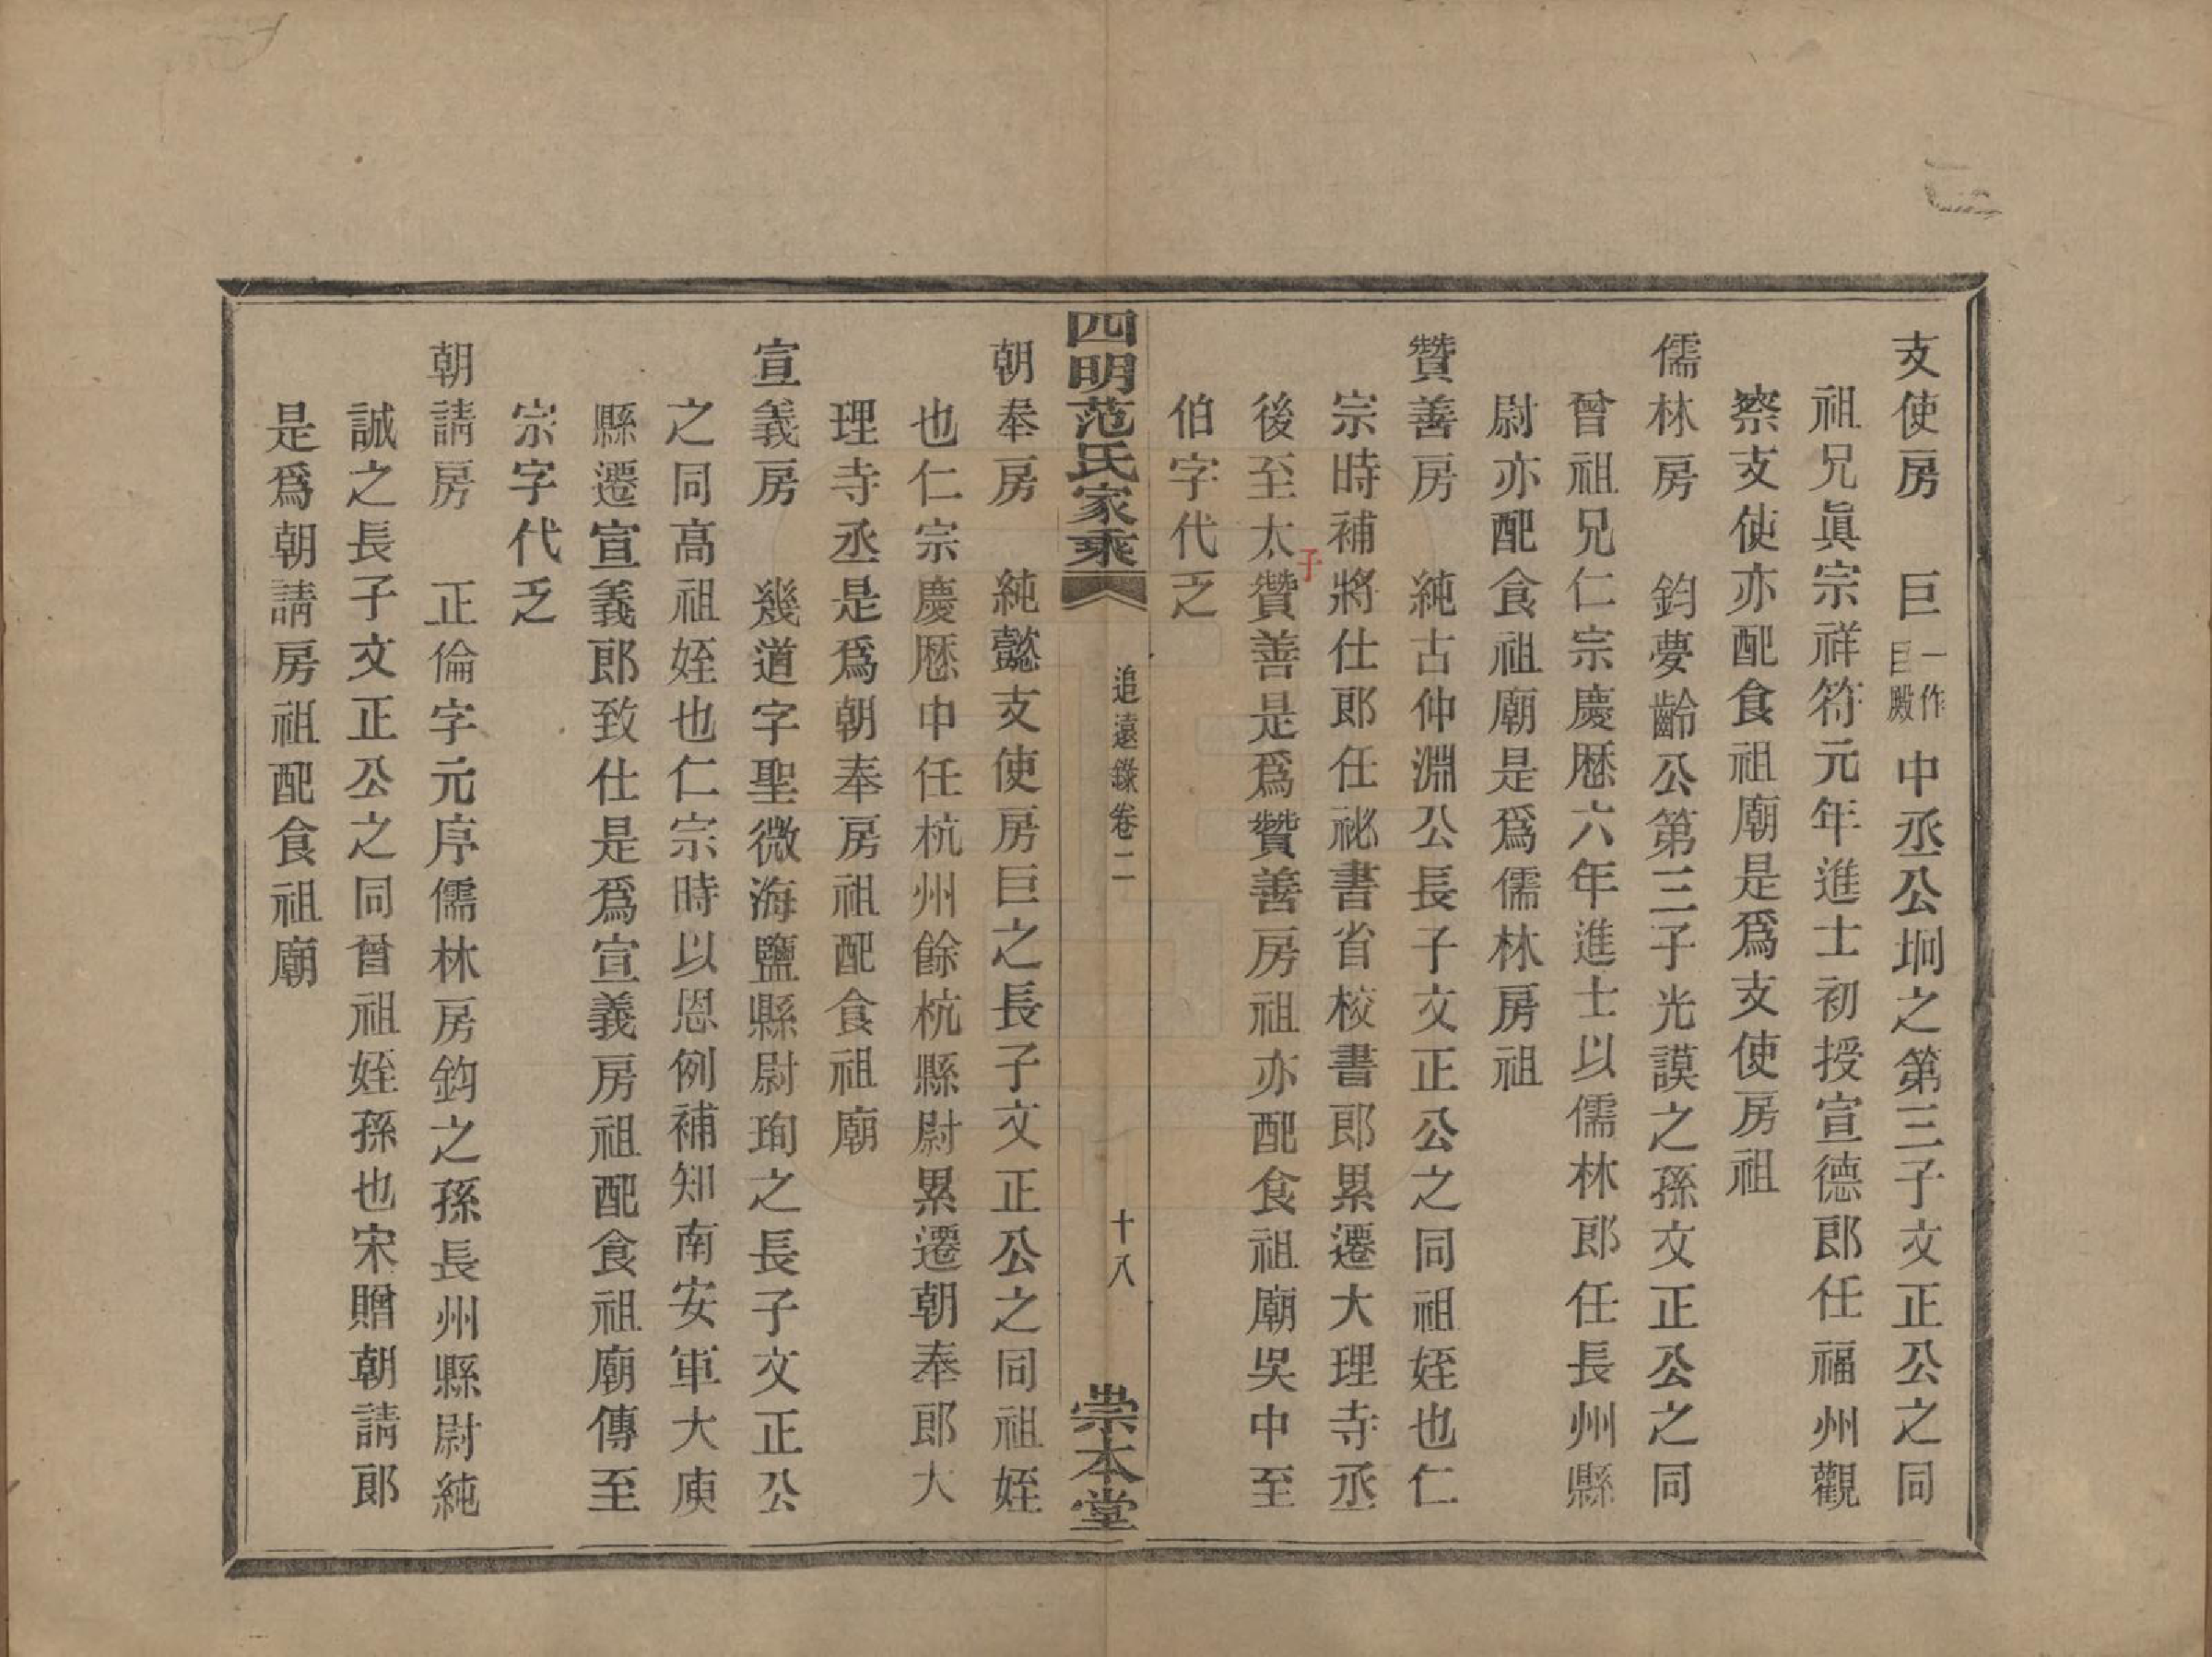 支使房　巨一作巨殿中丞公坰之第三子文正公之同
祖兄眞宗祥符元年進士初授宣德郎任福州觀
察支使亦配食祖廟是爲支使房祖
儒林房　鈞夢齡公第三子光謨之孫文正公之同
曾祖兄仁宗慶曆六年進士以儒林郎任長州縣
尉亦配食祖廟是爲儒林房祖
贊善房　純古仲淵公長子文正公之同祖姪也仁
宗時補將仕郎任祕書省校書郎累遷大理寺丞
後至太子贊善是爲贊善房祖亦配食祖廟吳中至
伯字代乏
四明范氏家乘　追遠錄卷二　十八　崇本堂
朝奉房　純懿支使房巨之長子文正公之同祖姪
也仁宗慶曆中任杭州餘杭縣尉累遷朝奉郎大
理寺丞是爲朝奉房祖配食祖廟
宣義房　幾道字聖微海鹽縣尉珣之長子文正公
之同高祖姪也仁宗時以恩例補知南安軍大庾
縣遷宣義郎致仕是爲宣義房祖配食祖廟傳至
宗字代乏
朝請房　正倫字元序儒林房鈞之孫長州縣尉純
誠之長子文正公之同曾祖姪孫也宋贈朝請郎
是爲朝請房祖配食祖廟